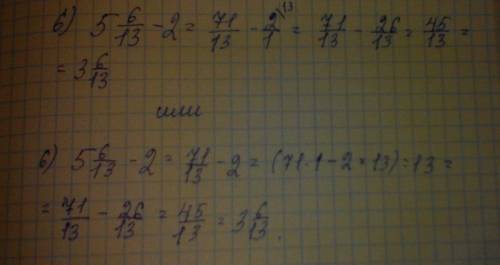 б) 5 6/13 - 2 = 71/13 - 2/1 \13 = 71/13 - 26/13 = 45/13 =
= 3 6/13
или
б) 5 6/13 - 2 = 71/13 - 2 = (71·1 - 2×13) : 13 =
= 71/13 - 26/13 = 45/13 = 3 6/13.